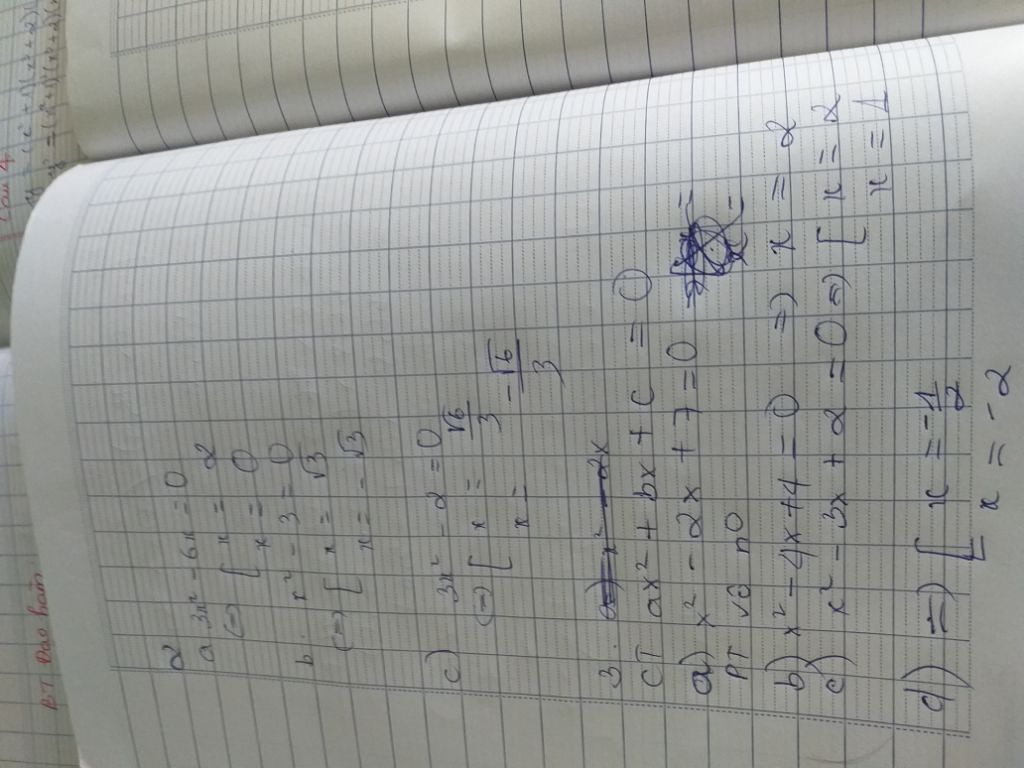 BT Đạo hàm
2
a. 3x² - 6x = 0
(=) [ x = 2
x = 0
b. x² - 3 = 0
(=) [ x = √3
x = -√3
c) 3x² - 2 = 0
(=) [ x = √6/3
x = -√6/3
3. a) x² - 2x
CT ax² + bx + c = 0
a) x² - 2x + 7 = 0
PT vô n0
b) x² - 4x + 4 = 0 => x = 2
c) x² - 3x + 2 = 0 => [ x = 2
x = 1
d) => [ x = -1/2
x = -2